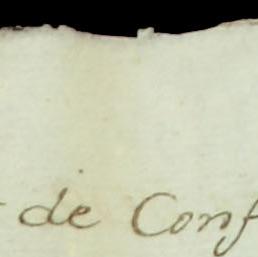 de Conf